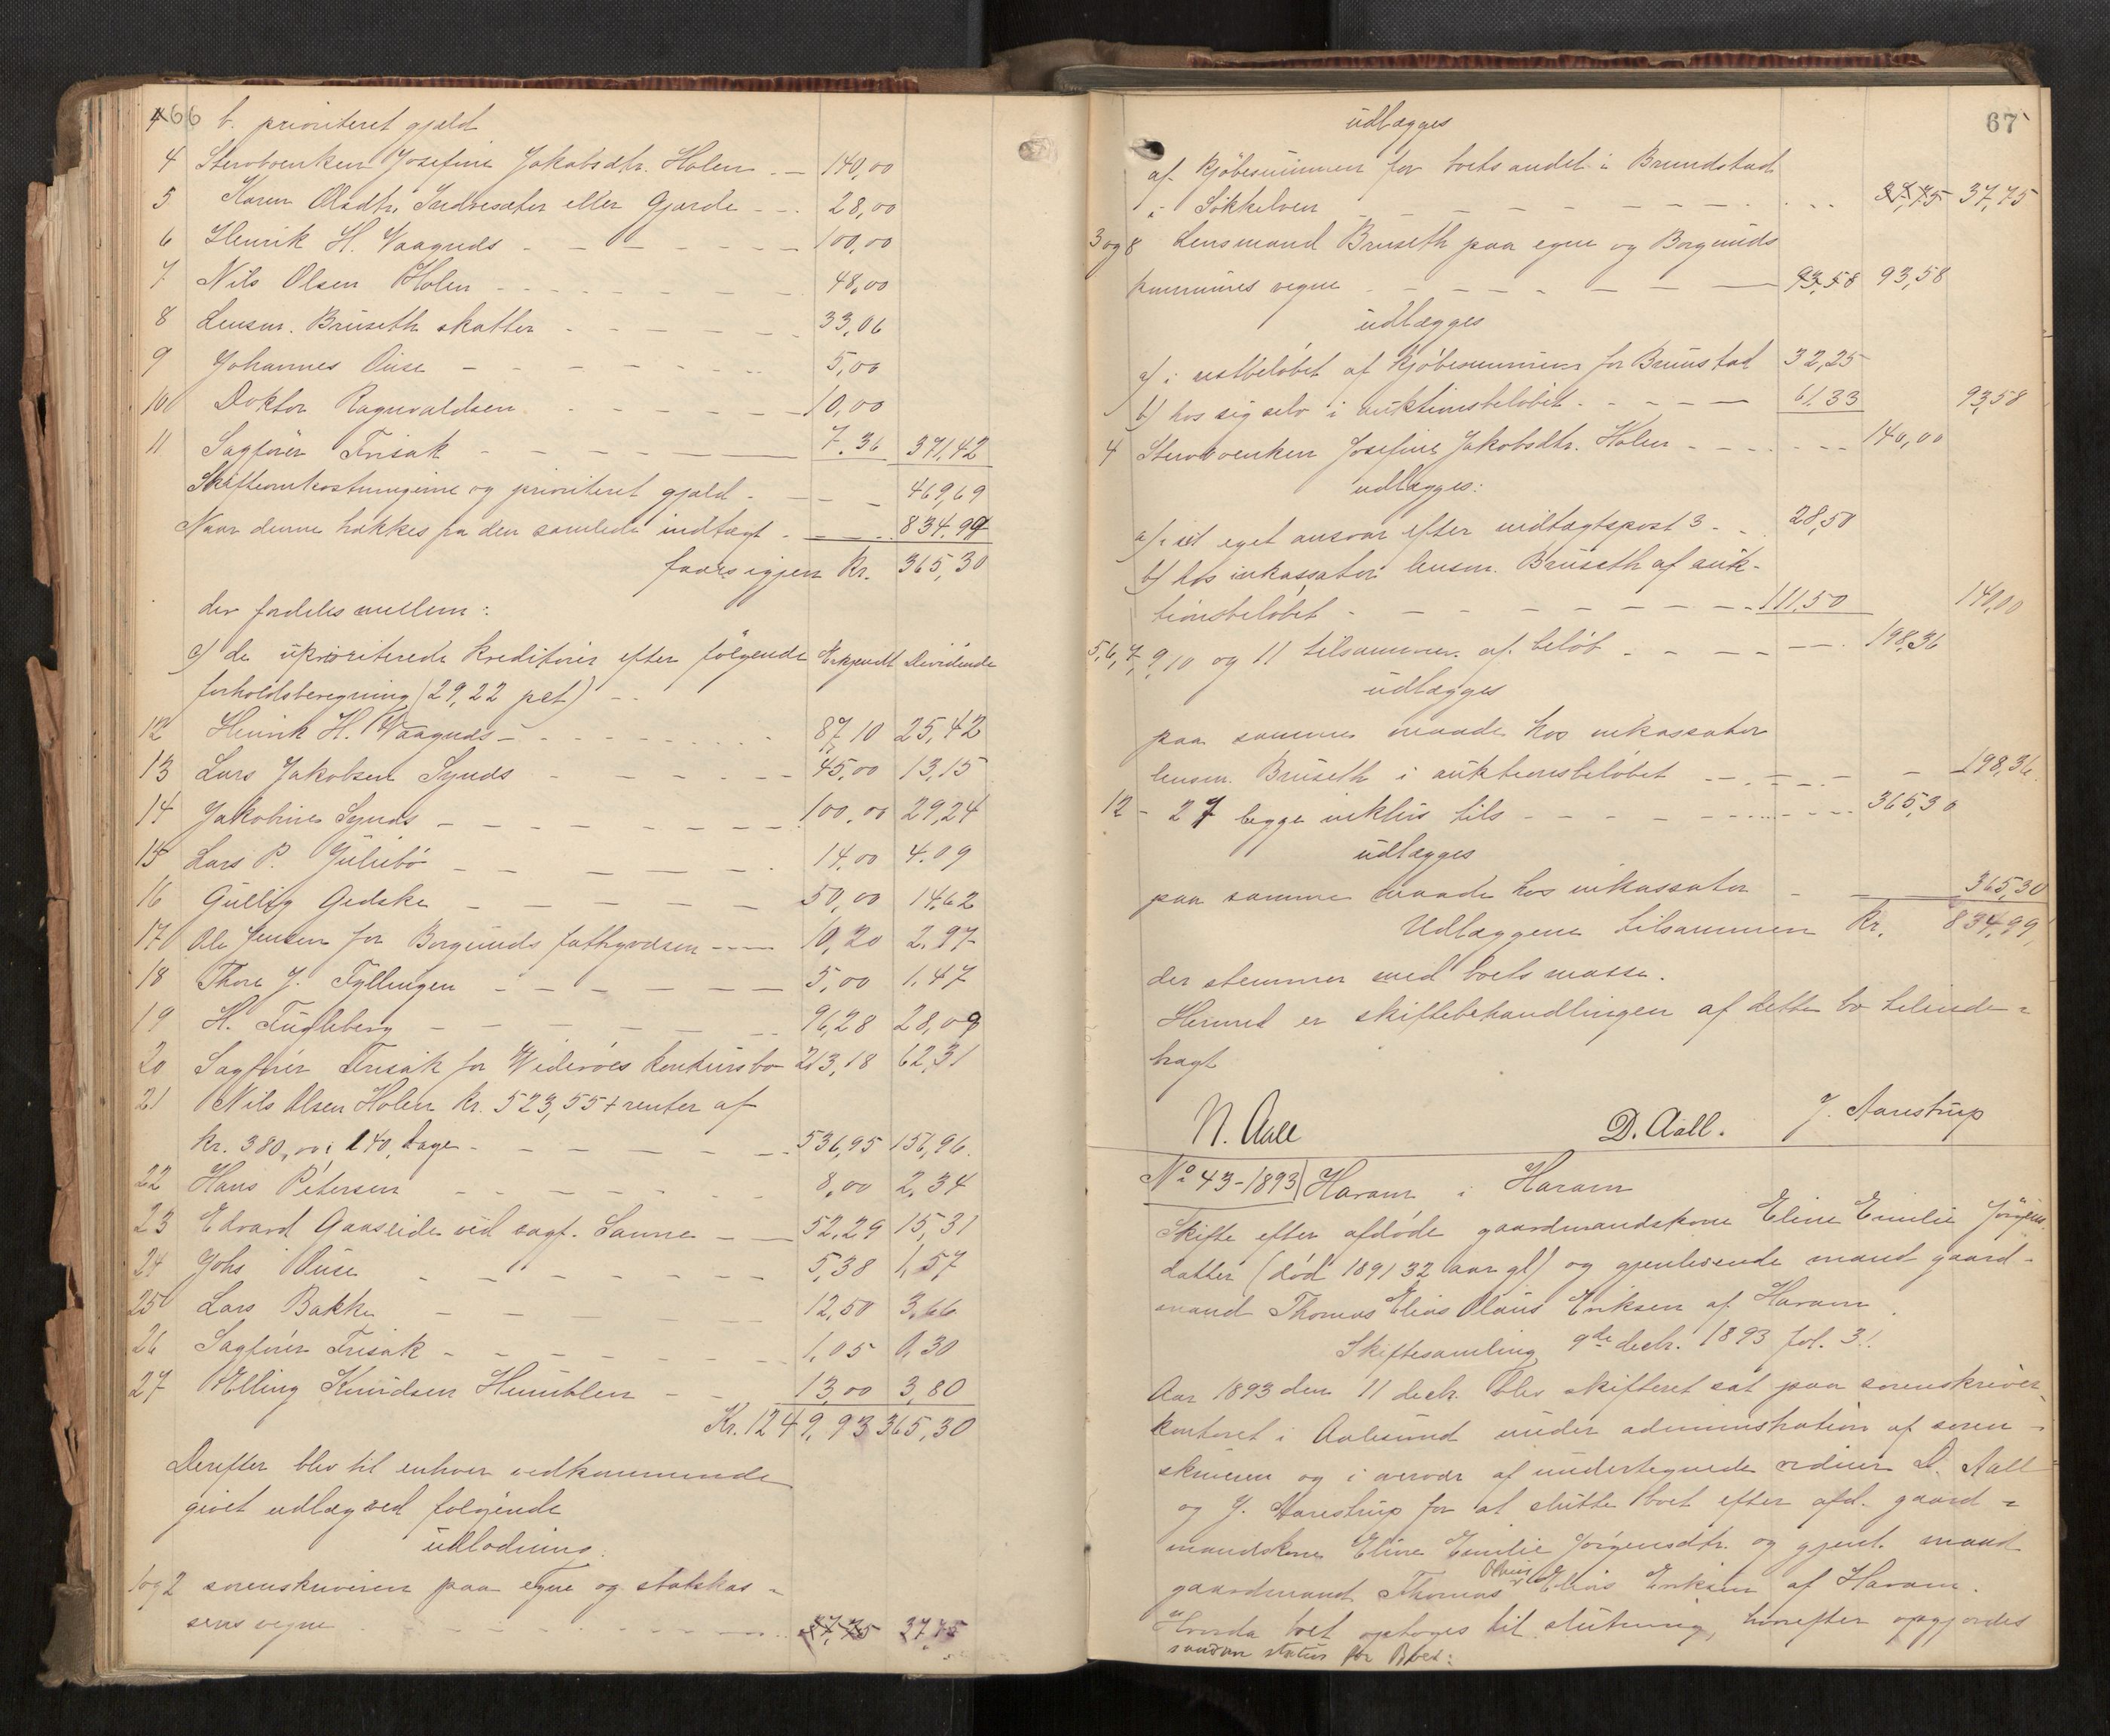 66 b. prioriteret gjæld
4 Stervboenken Josefine Jakobsdtr. Holen - 140,00
5 Karen Olsdtr. Sædvesæter eller Gjærde - - 28,00
6 Henrik H. Vaagnæs - - - 100,00
7 Nils Olsen Holen - - - 48,00
8 Lensm. Bruseth skatter - - - 33,06
9 Johannes Ouse - - - 5,00
10 Doktor Ragnvaldsen - - - 10,00
11 Sagfører Frisak - - - 7.36 371,42
Skifteomkostningerne og prioriteret gjæld - - - 469,69
Naar denne trækkes fra den samlede indtægt - - - 834,99
faaes igjen Kr. 365,30
der fordeles mellem:
c) de uprioriterede kreditorer efter følgende Erkjendt Dividende
forholdsberegning (29,22 pct) - -
12 Henrik H. Vaagnæs - - - 87,10 25,42
13 Lars Jakobsen Synæs - - - 45,00 13,15
14 Jakobine Synæs - - - 100,00 29,24
15 Lars P. Julebø - - - 14,00 4.09
16 Gullig Gedske - - - 50,00 14,62
17 Ole Jensen for Borgunds fattigvæsen - - 10,20 2,97
18 Thore J. Fyllingen - - - 5,00 1,47
19 H. Fugleberg - - - 96,28 28,09
20 Sagfører Frisak for Widerøes konkursbo 213,18 62,31
21 Nils Olsen Holen kr. 523,55 + renter af
kr. 380,00 i 140 dage - - - 536,95 156,96
22 Hans Petersen - - - 8,00 2,34
23 Edvard Gaaseide ved sagf. Sanne - - 52,29 15,31
24 Johs Ouse - - - 5,38 1,57
25 Lars Bakke - - - 12,50 3,66
26 Sagfører Frisak - - - 1,05 0,30
27 Elling Knudsen Humblen - - 13,00 3,80
Kr. 1249,93 365,30
Derefter blev til enhver vedkommende
givet udlæg ved følgende
udlodning.
1 og 2 sorenskriveren paa egne og statskas-
sens vegne - - - 37,75 37,75
67
udlægges
af kjøbesummen for boets andel i Brundstad
i Søkkelven - - - 37,75 37,75
3 og 8 Lensmand Bruseth paa egne og Borgunds
kommunes vegne - - - 93,58 93,58
udlægges
a) i restbeløbet af kjøbesummen for Brunstad 32,25
b) hos sig selv i auktionsbeløbet - - - 61.33 93,58
4 Stervboenken Josefine Jakobsdtr. Holen - - - 140,00
udlægges:
a) i sit eget ansvar efter indtægtspost 3 - - 28,50
b) hos inkassator lensm. Bruseth af auk-
tionsbeløbet - - - 111,50 140,00
5,6,7,9,10 og 11 tilsammen af beløb - - - 198,36
udlægges
paa samme maade hos inkassator
lensm. Bruseth i auktionsbeløbet - - - 198,36
12 - 27 begge inklus tils - - - 365,30
udlægges
paa samme maade hos inkassator - - 365,30
Udlæggene tilsammen Kr. 834,99,
der stemmer med boets masse.
Hermed er skiftebehandlingen af dette bo tilende-
bragt
N. Aall D. Aall. J. Aarestrup
No 43-1893 Haram i Haram
Skifte efter afdøde gaardmandskone Eline Emilie Jørgens
datter (død 1891 32 aar gl) og gjenlevende mand gaard-
mand Thomas Elias Olaus Eriksen af Haram.
Skiftesamling 9de decbr. 1893 fol. 31.
Aar 1893 den 11 decbr. blev skifteret sat paa sorenskriver-
kontoret i Aalesund under administration af soren-
skriveren og i overvær af undertegnede vidner D. Aall
og J. Aarestrup for at slutte boet efter afd. gaard-
mandskone Eline Emilie Jørgensdtr. og gjenl. mand
gaardmand Thomas Olaus Elias Eriksen af Haram.
boet optoges til slutning, hvorefter opgjordes
saadan status for Boet: